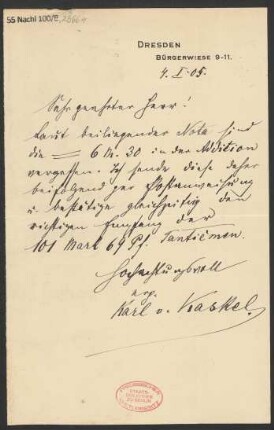 55 Nachl 100/B,
DRESDEN
BÜRGERWIESE 9-11.
4. I. 05.
Sehr geehrter Herr!
Laut beiliegender Nota sind
die 6 M. 30 in der Addition
vergessen. Ich sende diese daher
beifolgend per Postanweisung
u. bestätige gleichzeitig den
richtigen Empfang der
101 Mark 69 Pf. Tantièmen.
Hochachtungsvoll
erg.
Karl v. Kaskel.